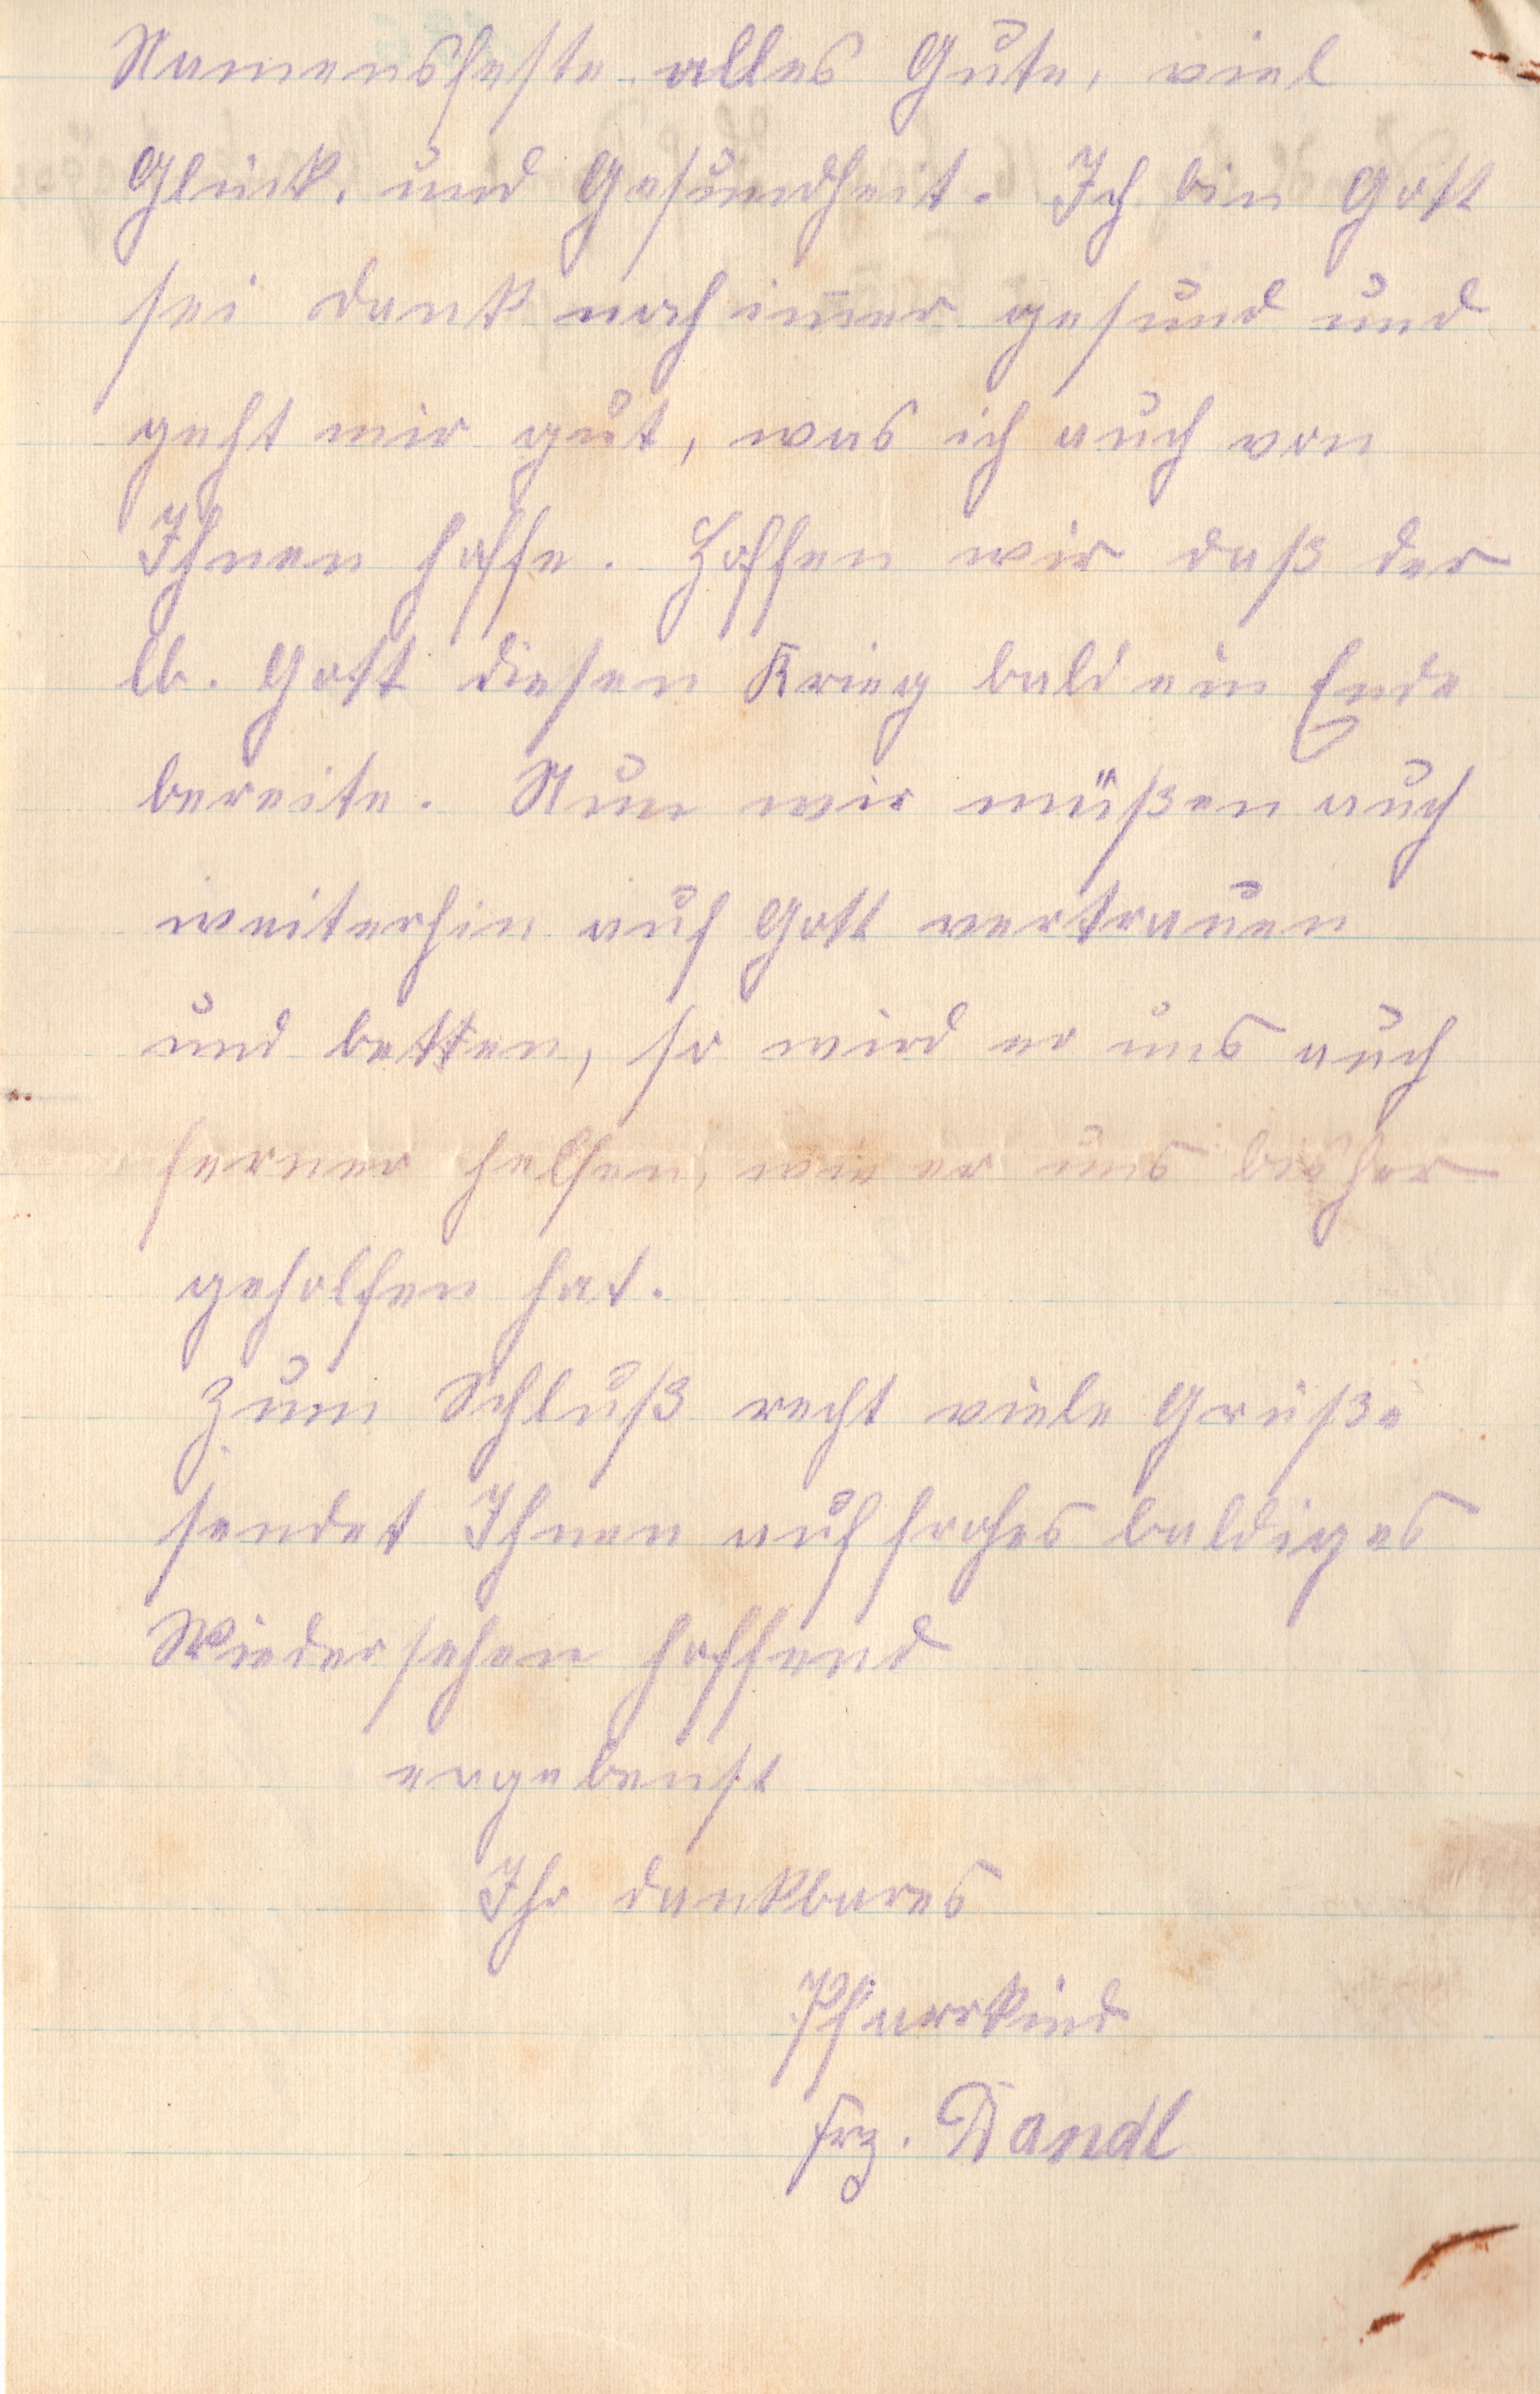 Namensfeste alles Gute, viel
Glück, und Gesundheit. Ich bin Gott
sei dank noch im̅er gesund und
geht mir gut, was ich auch von
Ihnen hoffe. Hoffen wir daß der
lb. Gott diesen Krieg bald ein Ende
bereite. Nun wir müßen auch
weiterhin auf Gott vertrauen
und betten, so wird er uns auch
ferner helfen, wie er uns bisher
geholfen hat.
Zum Schluß recht viele Grüße
sendet Ihnen auf frohes baldiges
Wiedersehen hoffend
ergebenst
Ihr dankbares
Pfarrkind
Frz. Dandl